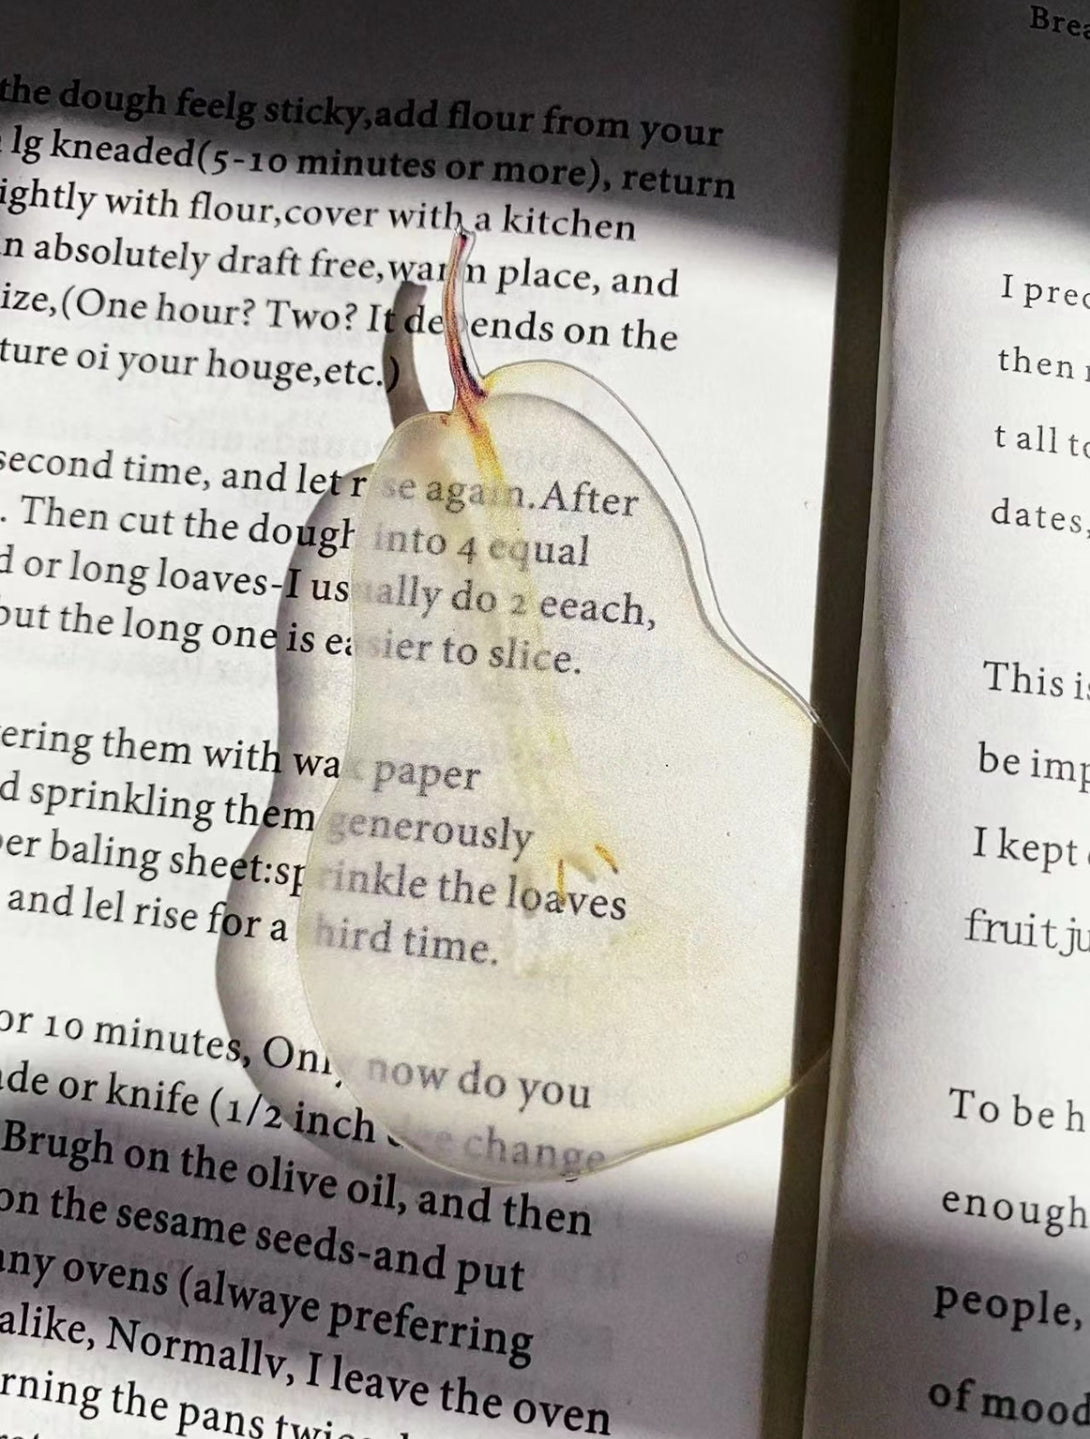 the dough feelg sticky,add flour from your
lg kneaded(5-10 minutes or more), return
ightly with flour,cover with a kitchen
n absolutely draft free, place, and
ize,(One hour? Two? It ends on the
ture oi your houge,etc.)
second time, and let se again.After
. Then cut the dough into 4 equal
d or long loaves-I usually do 2 eeach,
but the long one is easier to slice.
ering them with paper
d sprinkling them generously
er baling sheet:sprinkle the loaves
and lel rise for a hird time.
or 10 minutes, Only now do you
ade or knife (1/2 inch change
Brugh on the olive oil, and then
on the sesame seeds-and put
any ovens (alwaye preferring
alike, Normallv, I leave the oven
rning the pans
Brea
I prec
then
t all to
dates,
This is
be imp
I kept
fruit ju
To be h
enough
people,
of mood